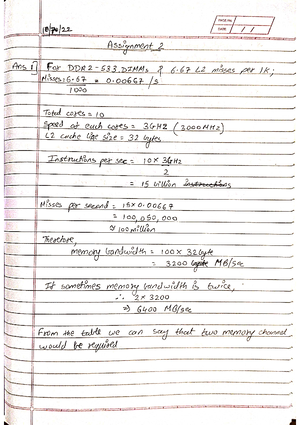 PAGE No.
DATE / /
18/10/22
Assignment 2
Ans 1 For DDR2-533 DIMMs & 6.67 L2 misses per 1K;
Misses 6.67 = 0.00667 /s
1000
Total cores = 10
Speed at each cores = 3GHz (3000MHz)
L2 cache line size = 32 bytes
Instructions per sec = 10 X 3GHz
2
= 15 billion instructions
Misses per second = 15 X 0.00667
= 100,050,000
≈ 100 million
Therefore,
memory bandwidth = 100 X 32 byte
= 3200 MB/sec
If sometimes memory bandwidth is twice,
∴ 2 X 3200
⇒ 6400 MB/sec
From the table we can say that two memory channel
would be required